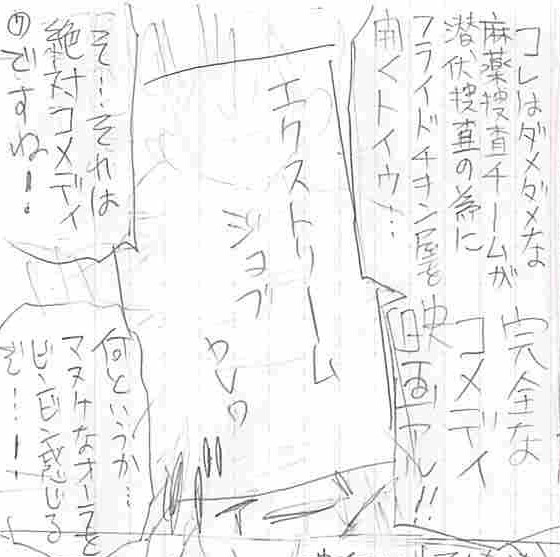 コレはダメダメな
麻薬捜査チームが
潜伏捜査の為に
フライドチキン屋を
開くトイウ…
完全な
コメディ
映画アル!!
エクストリーム
ジョブ
そ…それは
絶対コメディ
のですね…!
何というか…
マヌケなオーラを
ビンビン感じる
ぞ…!